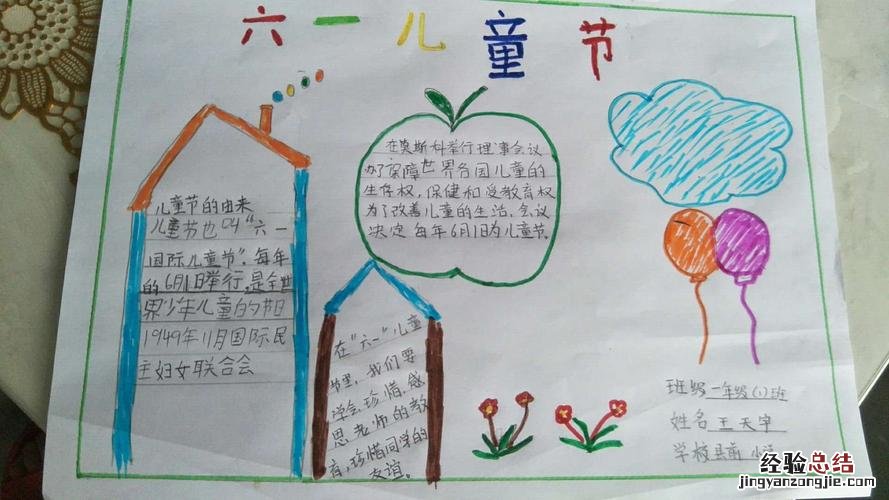 六一儿童节
儿童节的由来
儿童节也叫“六一
国际儿童节”,每年
的6月1日举行,是全世
界少年儿童的节日
1949年11月国际民
主妇女联合会
在莫斯科举行理事会议
为了保障世界各国儿童的
生存权,保健和受教育权
为了改善儿童的生活,会议
决定每年6月1日为儿童节。
在“六一”儿童
节里,我们要
学会珍惜,感
恩老师的教
育,珍惜同学的
友谊。
班级 一年级(1)班
姓名 王天宇
学校 县前小
经验总结
jingyanzongjie.com